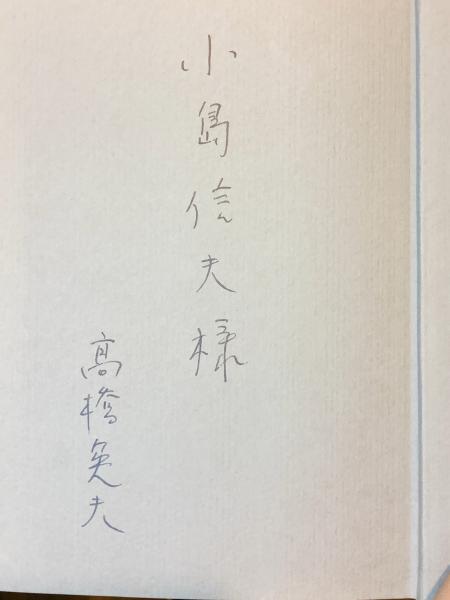 小島信夫様
高橋英夫